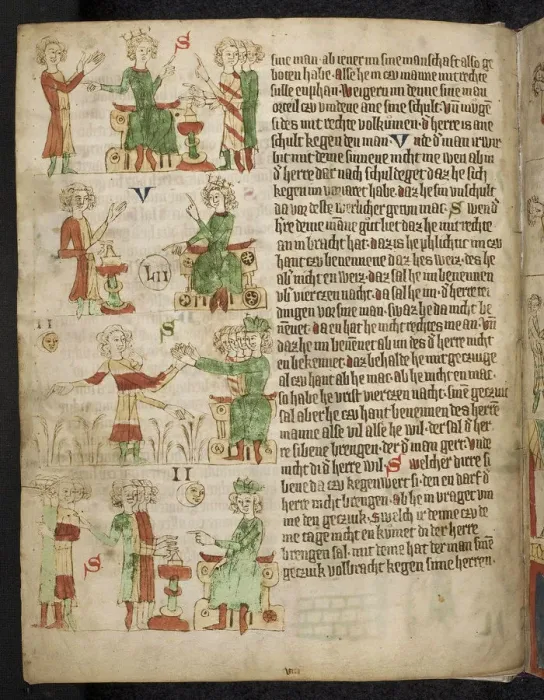 sine man. ab iener im sine manschaft also ge
boten habe. alse he im czu manne mit rechte
sulle enphan. Weigern im denne sine man
orteil czu vindene ane sine schult. Vn mugē
si des mit rechte volkumen. d' herre is ane
schult kegen den man. Vnte d' man irwir
bit mit deme sinnene nicht me wen ab im
d' herre dar nach schuldeget daz he sich
kegen im vorwaret habe. daz he sin vnschult
da vor deste werlicher getun mac. S wen d'
h're deme māne gut liet daz he mit rechte
an in bracht hat. daz is he phlichtic im czu
hant czu benennene daz hes weiz. des he
ab' nicht en weiz. daz sal he im benennen
vb' vierczen nacht. da sal he im. d' herre tei
dingen vor sine man. swaz he da nicht be
nēnet. da en hat he nicht rechtes me an. vn̄
daz he im benēnet ab im des d' herre nicht
en bekennet. daz behalde he mit geczuge
al czu hant ab he mac. ab he nicht en mac.
so habe he vrist vierczen nacht. sine geczuic
sal aber he czu hant benennen des herrē
manne alse vil alse he wil. der sal d' her
re sibene brengen. der d' man gert. vnde
nicht di d' herre wil. S welcher dirre si
bene da czu kegenwert si. den en darf d'
herre nicht brengen. ab he in vraget vm
me den geczuk. Swelch ir denne czu de
me tage nicht en kumet den der herre
brengen sal. mit deme hat der man sinē
geczuik volbracht kegen sinne herren.
S
V
LII
II
S
II
S